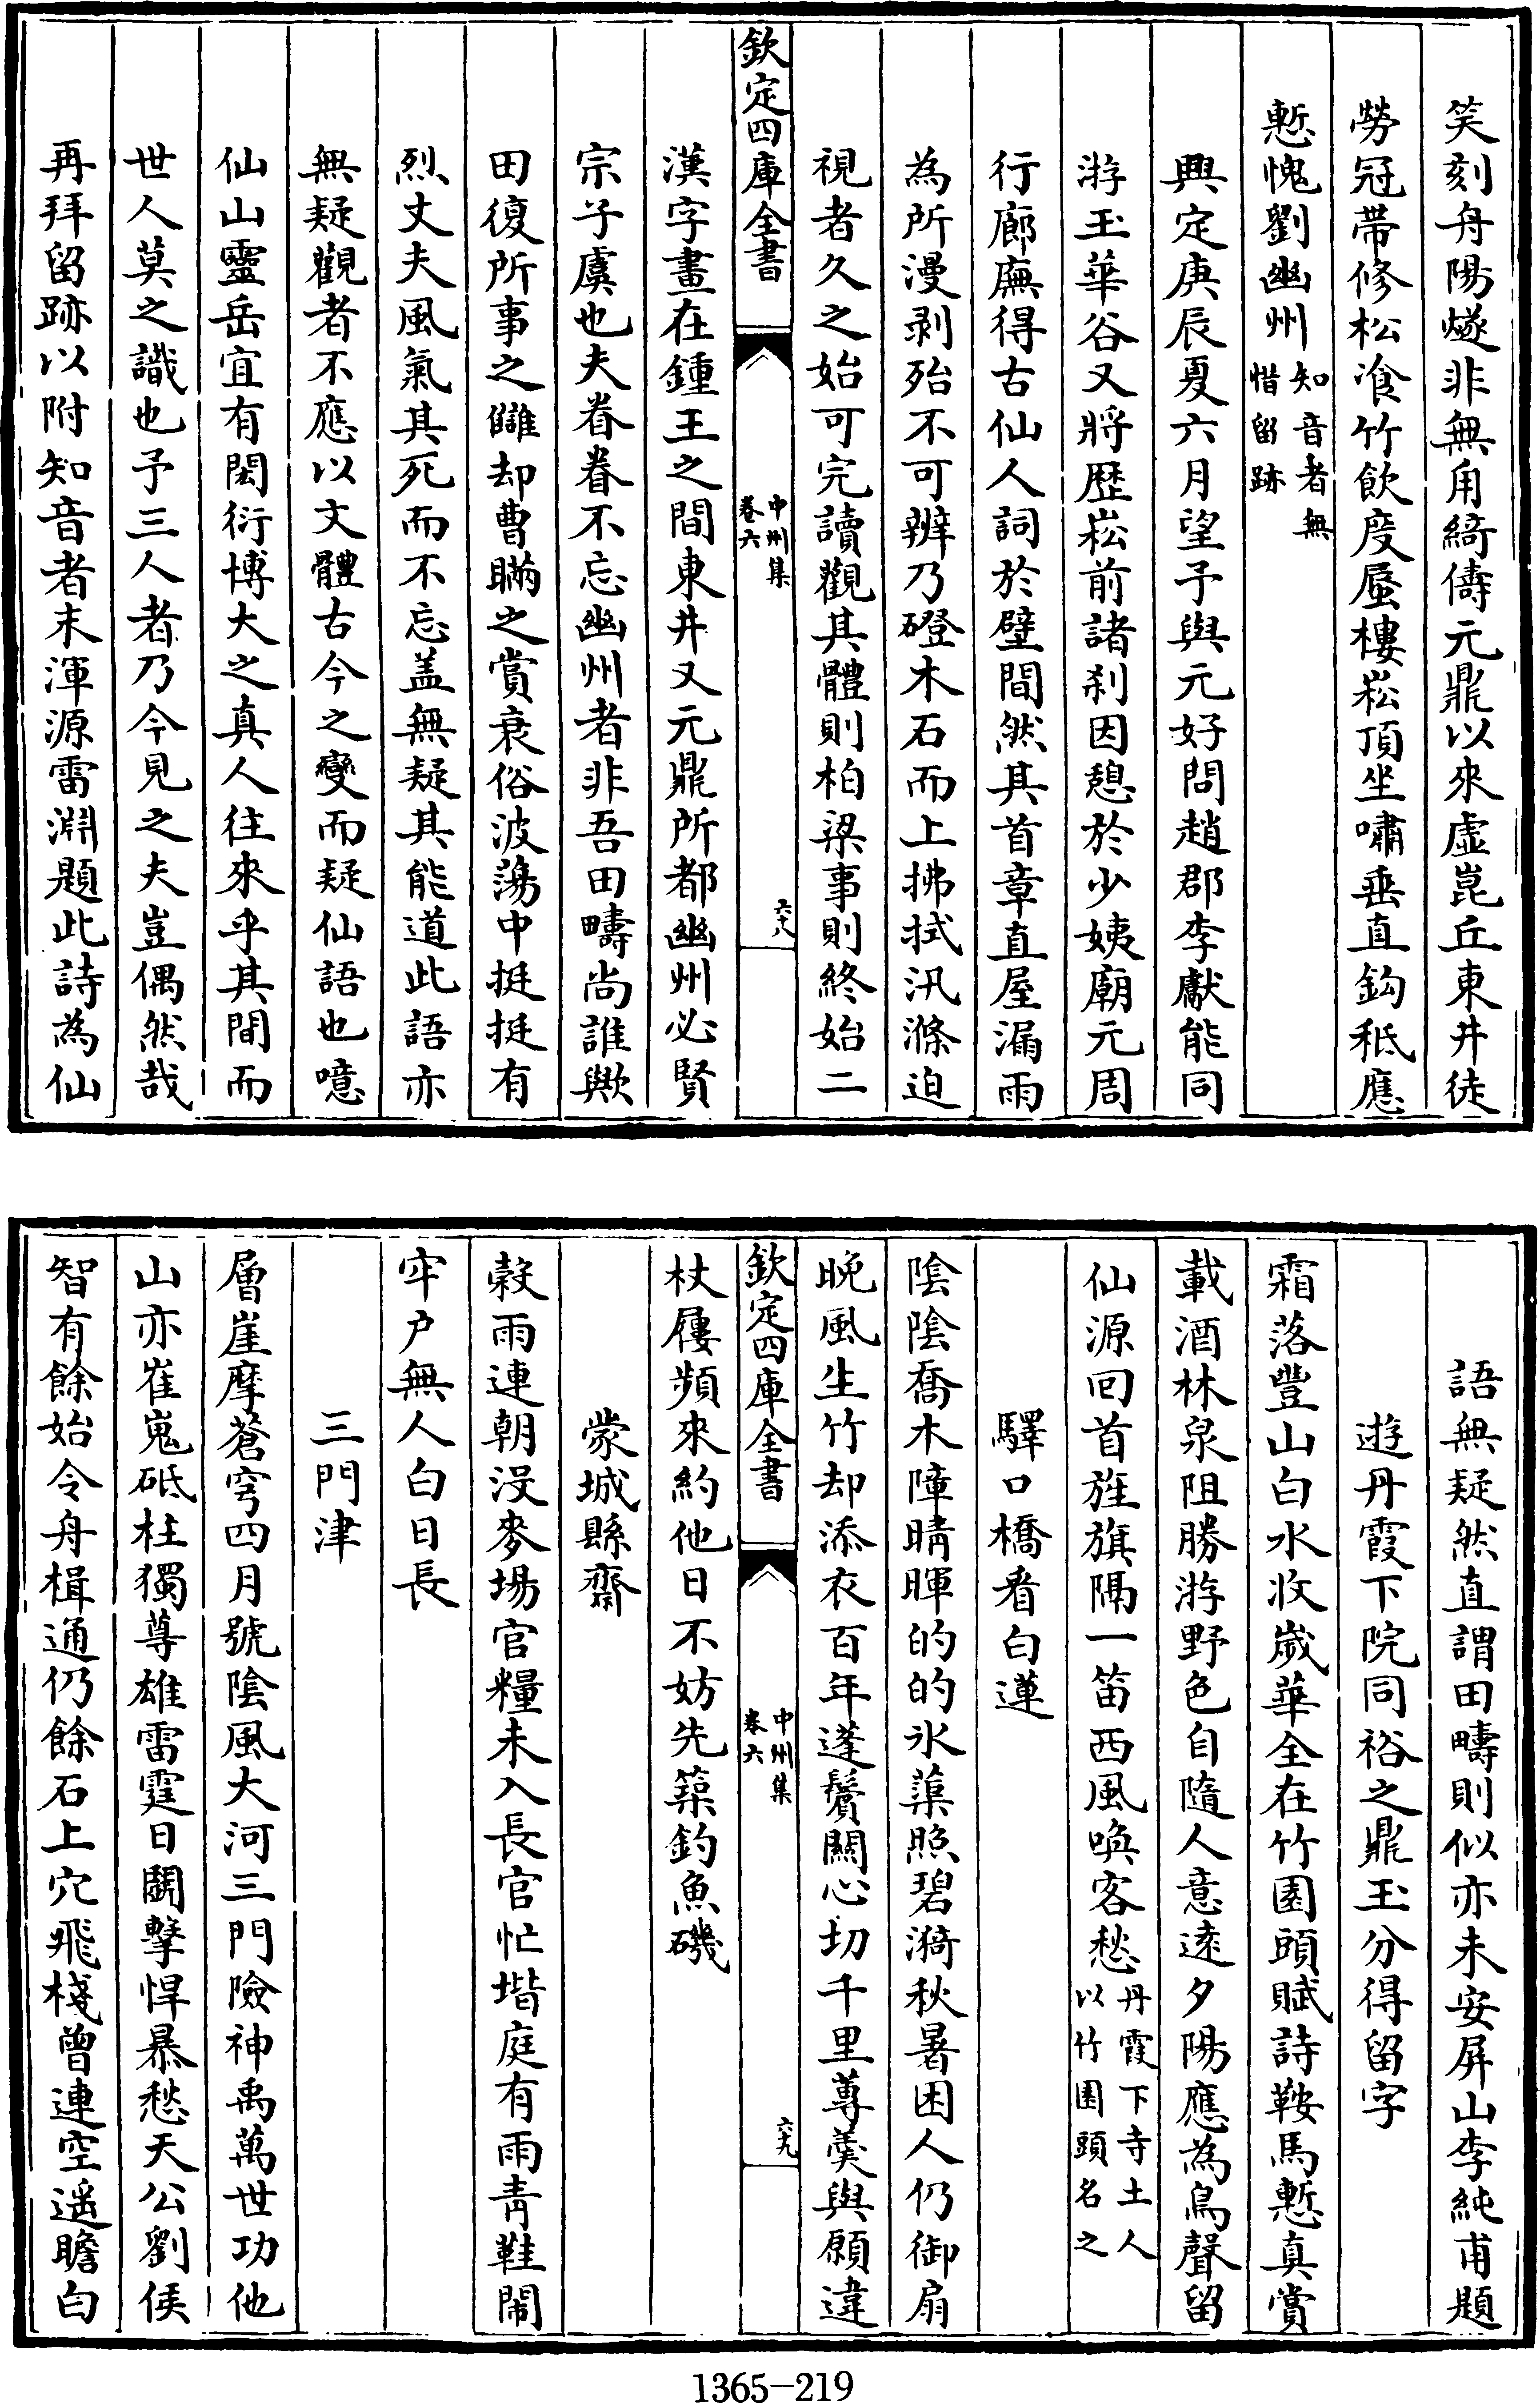 笑刻舟陽燧非無角綺儔元鼎以來虛崑丘東井徒
勞冠帶修松飡竹飲度蜃樓崧頂坐嘯垂直鈎秪應
慙愧劉幽州知音者無惜留跡
興定庚辰夏六月望予與元好問趙郡李獻能同
游玉華谷又將歴崧前諸刹因憩於少姨廟元周
行廊廡得古仙人詞於壁間然其首章直屋漏雨
為所漫剥殆不可辨乃磴木石而上拂拭汛滌迫
視者久之始可完讀觀其體則柏梁事則終始二
欽定四庫全書
中州集
卷六
六十八
漢字畫在鍾王之間東井又元鼎所都幽州必賢
宗子虞也夫眷眷不忘幽州者非吾田疇尚誰歟
田復所事之讎却曹瞞之賞衰俗波蕩中挺挺有
烈丈夫風氣其死而不忘盖無疑其能道此語亦
無疑觀者不應以文體古今之變而疑仙語也噫
仙山靈岳宜有閎衍博大之真人往來乎其間而
世人莫之識也予三人者乃今見之夫豈偶然哉
再拜留跡以附知音者末渾源雷淵題此詩為仙
語無疑然直謂田疇則似亦未安屏山李純甫題
遊丹霞下院同裕之鼎玉分得留字
霜落豐山白水收歲華全在竹園頭賦詩鞍馬慙真賞
載酒林泉阻勝游野色自隨人意遠夕陽應為鳥聲留
仙源回首旌旗隔一笛西風喚客愁丹霞下寺土人以竹園頭名之
驛口橋看白蓮
陰陰喬木障晴暉的的氷蕖照碧漪秋暑困人仍御扇
晚風生竹却添衣百年蓬鬢關心切千里蓴羹與願違
欽定四庫全書
中州集
卷六
六十九
杖屨頻來約他日不妨先築釣魚磯
蒙城縣齋
穀雨連朝没麥場官糧未入長官忙堦庭有雨青鞋閙
牢户無人白日長
三門津
層崖摩蒼穹四月號陰風大河三門險神禹萬世功他
山亦崔嵬砥柱獨尊雄雷霆日鬭擊悍暴愁天公劉侯
智有餘始令舟楫通仍餘石上穴飛棧曾連空遥瞻白
1365-219